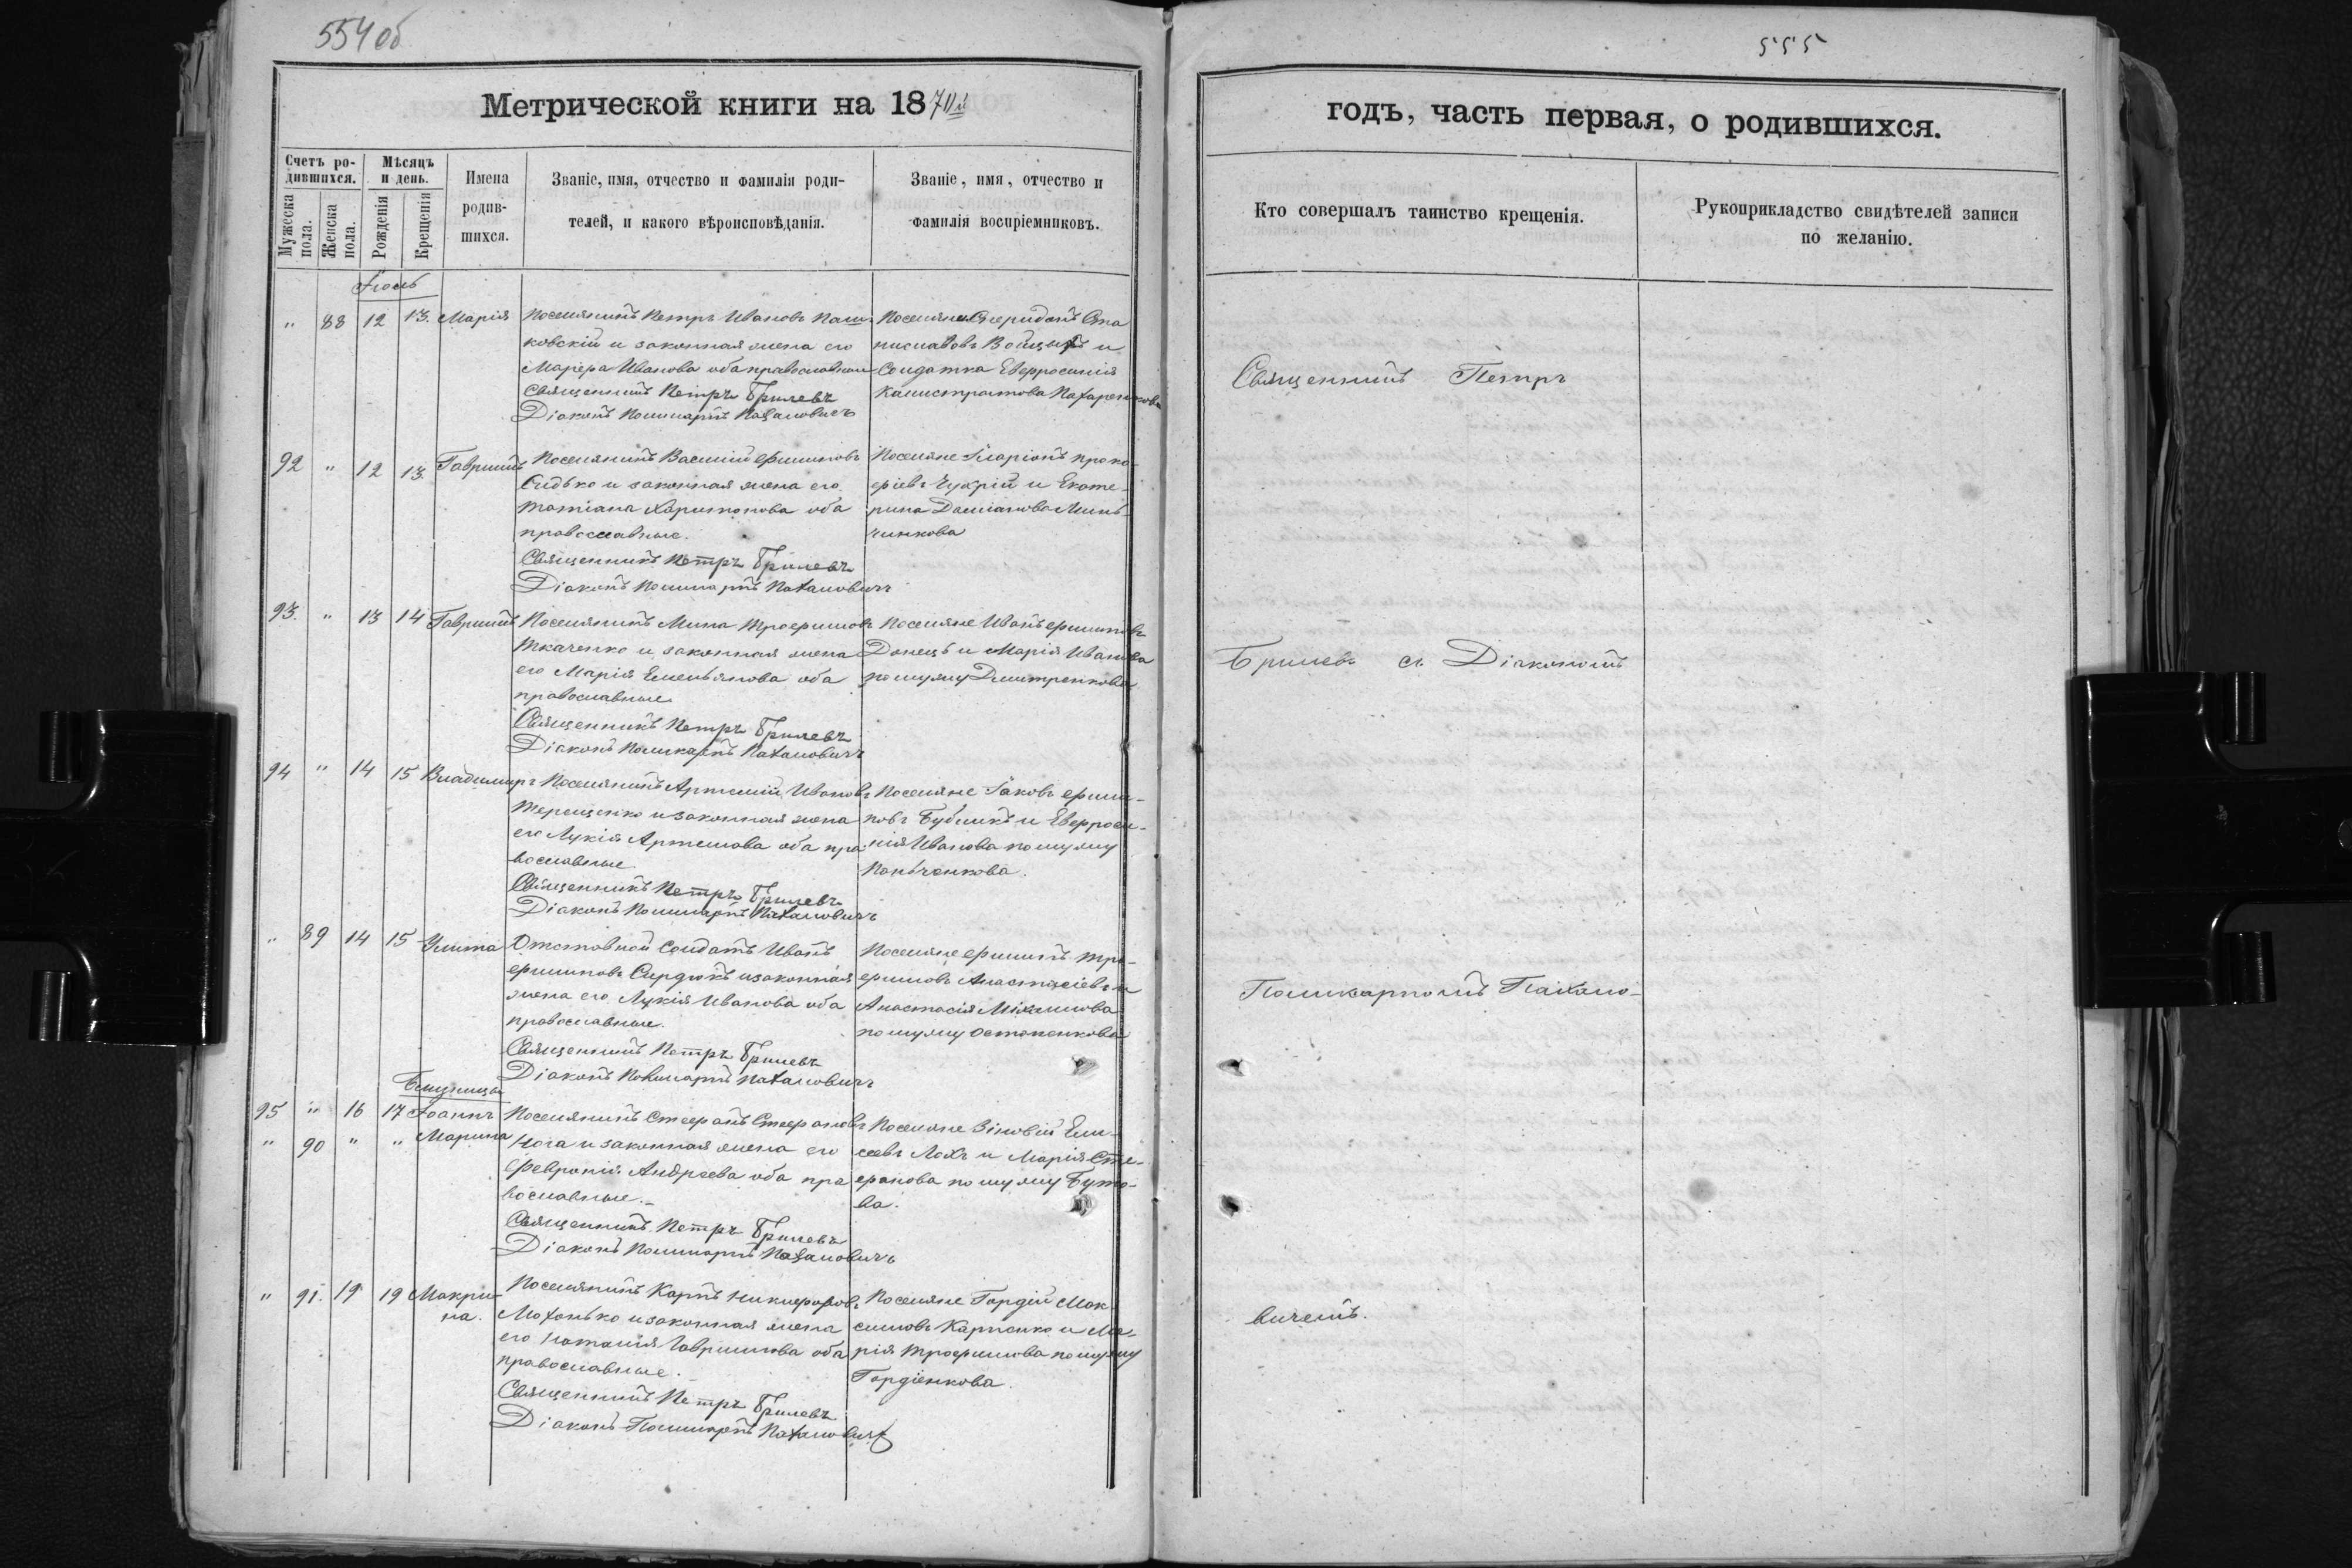 554 об
Метрической книги на 1870й
Счетъ родившихся.
Мѣсяцъ и день.
Мужеска пола.
Женска пола.
Рожденія
Крещенія
Имена родившихся.
Званіе, имя, отчество и фамилія родителей, и какого вѣроисповѣданія.
Званіе, имя, отчество и фамилія воспріемниковъ.
Іюль
" 88 12 13. Марія
Поселянинъ Петръ Ивановъ Паш-
ковскій и законная жена его
Марѳа Иванова оба православные
Священникъ Петръ Брилевъ
Діаконъ Поликарпъ Пахаловичъ
Поселяне Спиридонъ Ста
ниславовъ и
Солдатка Евфросинія
Калистратова
92 " 12 13. Гавріилъ
Поселянинъ Василій Филиповъ
Сидько и законная жена его
Татіана Харитонова оба
православные.
Священникъ Петръ Брилевъ
Діаконъ Поликарпъ Пахаловичъ
Поселяне Иларіонъ Проко-
фіевъ Чухрій и Екате-
рина Даміанова Минь-
чинкова
93. " 13 14 Гавріилъ
Поселянинъ Мина Трофимовъ
Ткаченко и законная жена
его Марія Емельянова оба
православные
Священникъ Петръ Брилевъ
Діаконъ Поликарпъ Пахаловичъ
Поселяне Иванъ Филиповъ
Донецъ и Марія Иванова
по мужу Дмитренкова
94 " 14 15 Владимиръ
Поселянинъ Артемій Ивановъ
Терещенко и законная жена
его Лукія Артемова оба пра
вославные
Священникъ Петръ Брилевъ
Діаконъ Поликарпъ Пахаловичъ
Поселяне Іаковъ Фили-
повъ Бубликъ и Евфроси-
нія Иванова по мужу
Паньченкова.
" 89 14 15 Улита
Отставной Солдатъ Иванъ
Филиповъ Сердюкъ и законная
жена его Лукія Иванова оба
православные.
Священникъ Петръ Брилевъ
Діаконъ Поликарпъ Пахаловичъ
Поселяне Филипъ Тро-
фимовъ Анастасіевъ и
Анастасія Михаилова
по мужу Остапенкова
Близнецы
95 " 16 17 Іоаннъ
" 90 " " Марина
Поселянинъ Стефанъ Стефановъ
Нога и законная жена его
Февронія Андреева оба пра
вославные.
Священникъ Петръ Брилевъ
Діаконъ Поликарпъ Пахаловичъ
Поселяне Зіновій Ели-
сеевъ Лохъ и Марія Сте-
фанова по мужу Буто-
ва.
" 91. 19 19 Макри-
на.
Поселянинъ Карпъ Никифоровъ
Мохонько и законная жена
его Наталія Гавриилова оба
православные.
Священникъ Петръ Брилевъ
Діаконъ Поликарпъ Пахаловичъ
Поселяне Гордій Мак-
симовъ Карпенко и Ма-
рія Трофимова по мужу
Гордіенкова.
555
годъ, часть первая, о родившихся.
Кто совершалъ таинство крещенія.
Рукоприкладство свидѣтелей записи
по желанію.
Священникъ Петръ
Брилевъ съ Діакономъ
Поликарпомъ Пахало-
вичемъ.